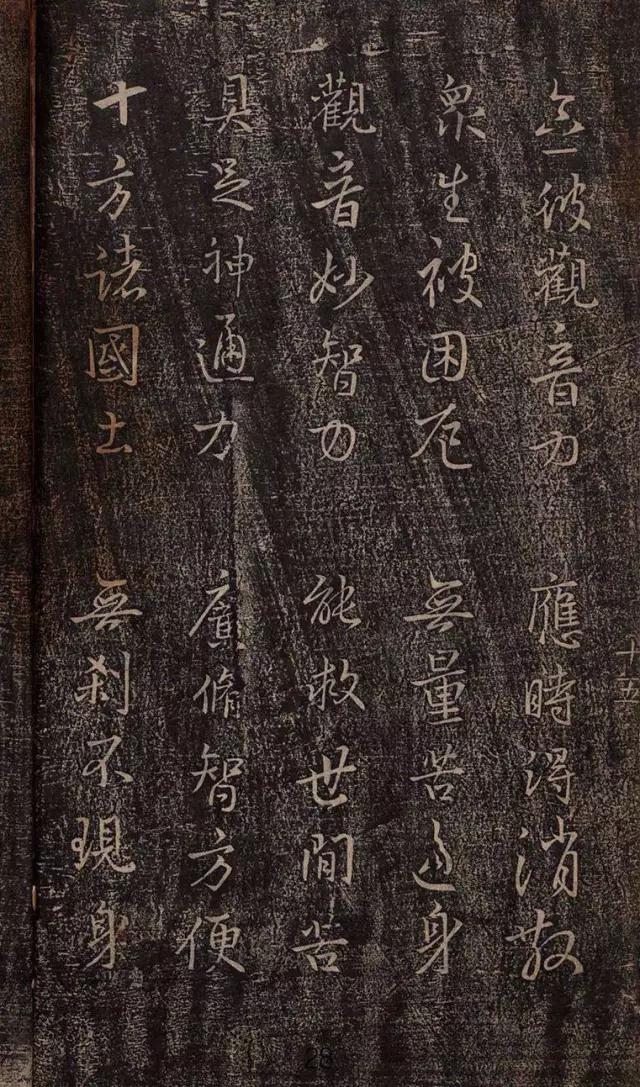 十五
念彼觀音力 應時得消散
眾生被困厄 無量苦逼身
觀音妙智力 能救世間苦
具足神通力 廣脩智方便
十方諸國土 無剎不現身
28